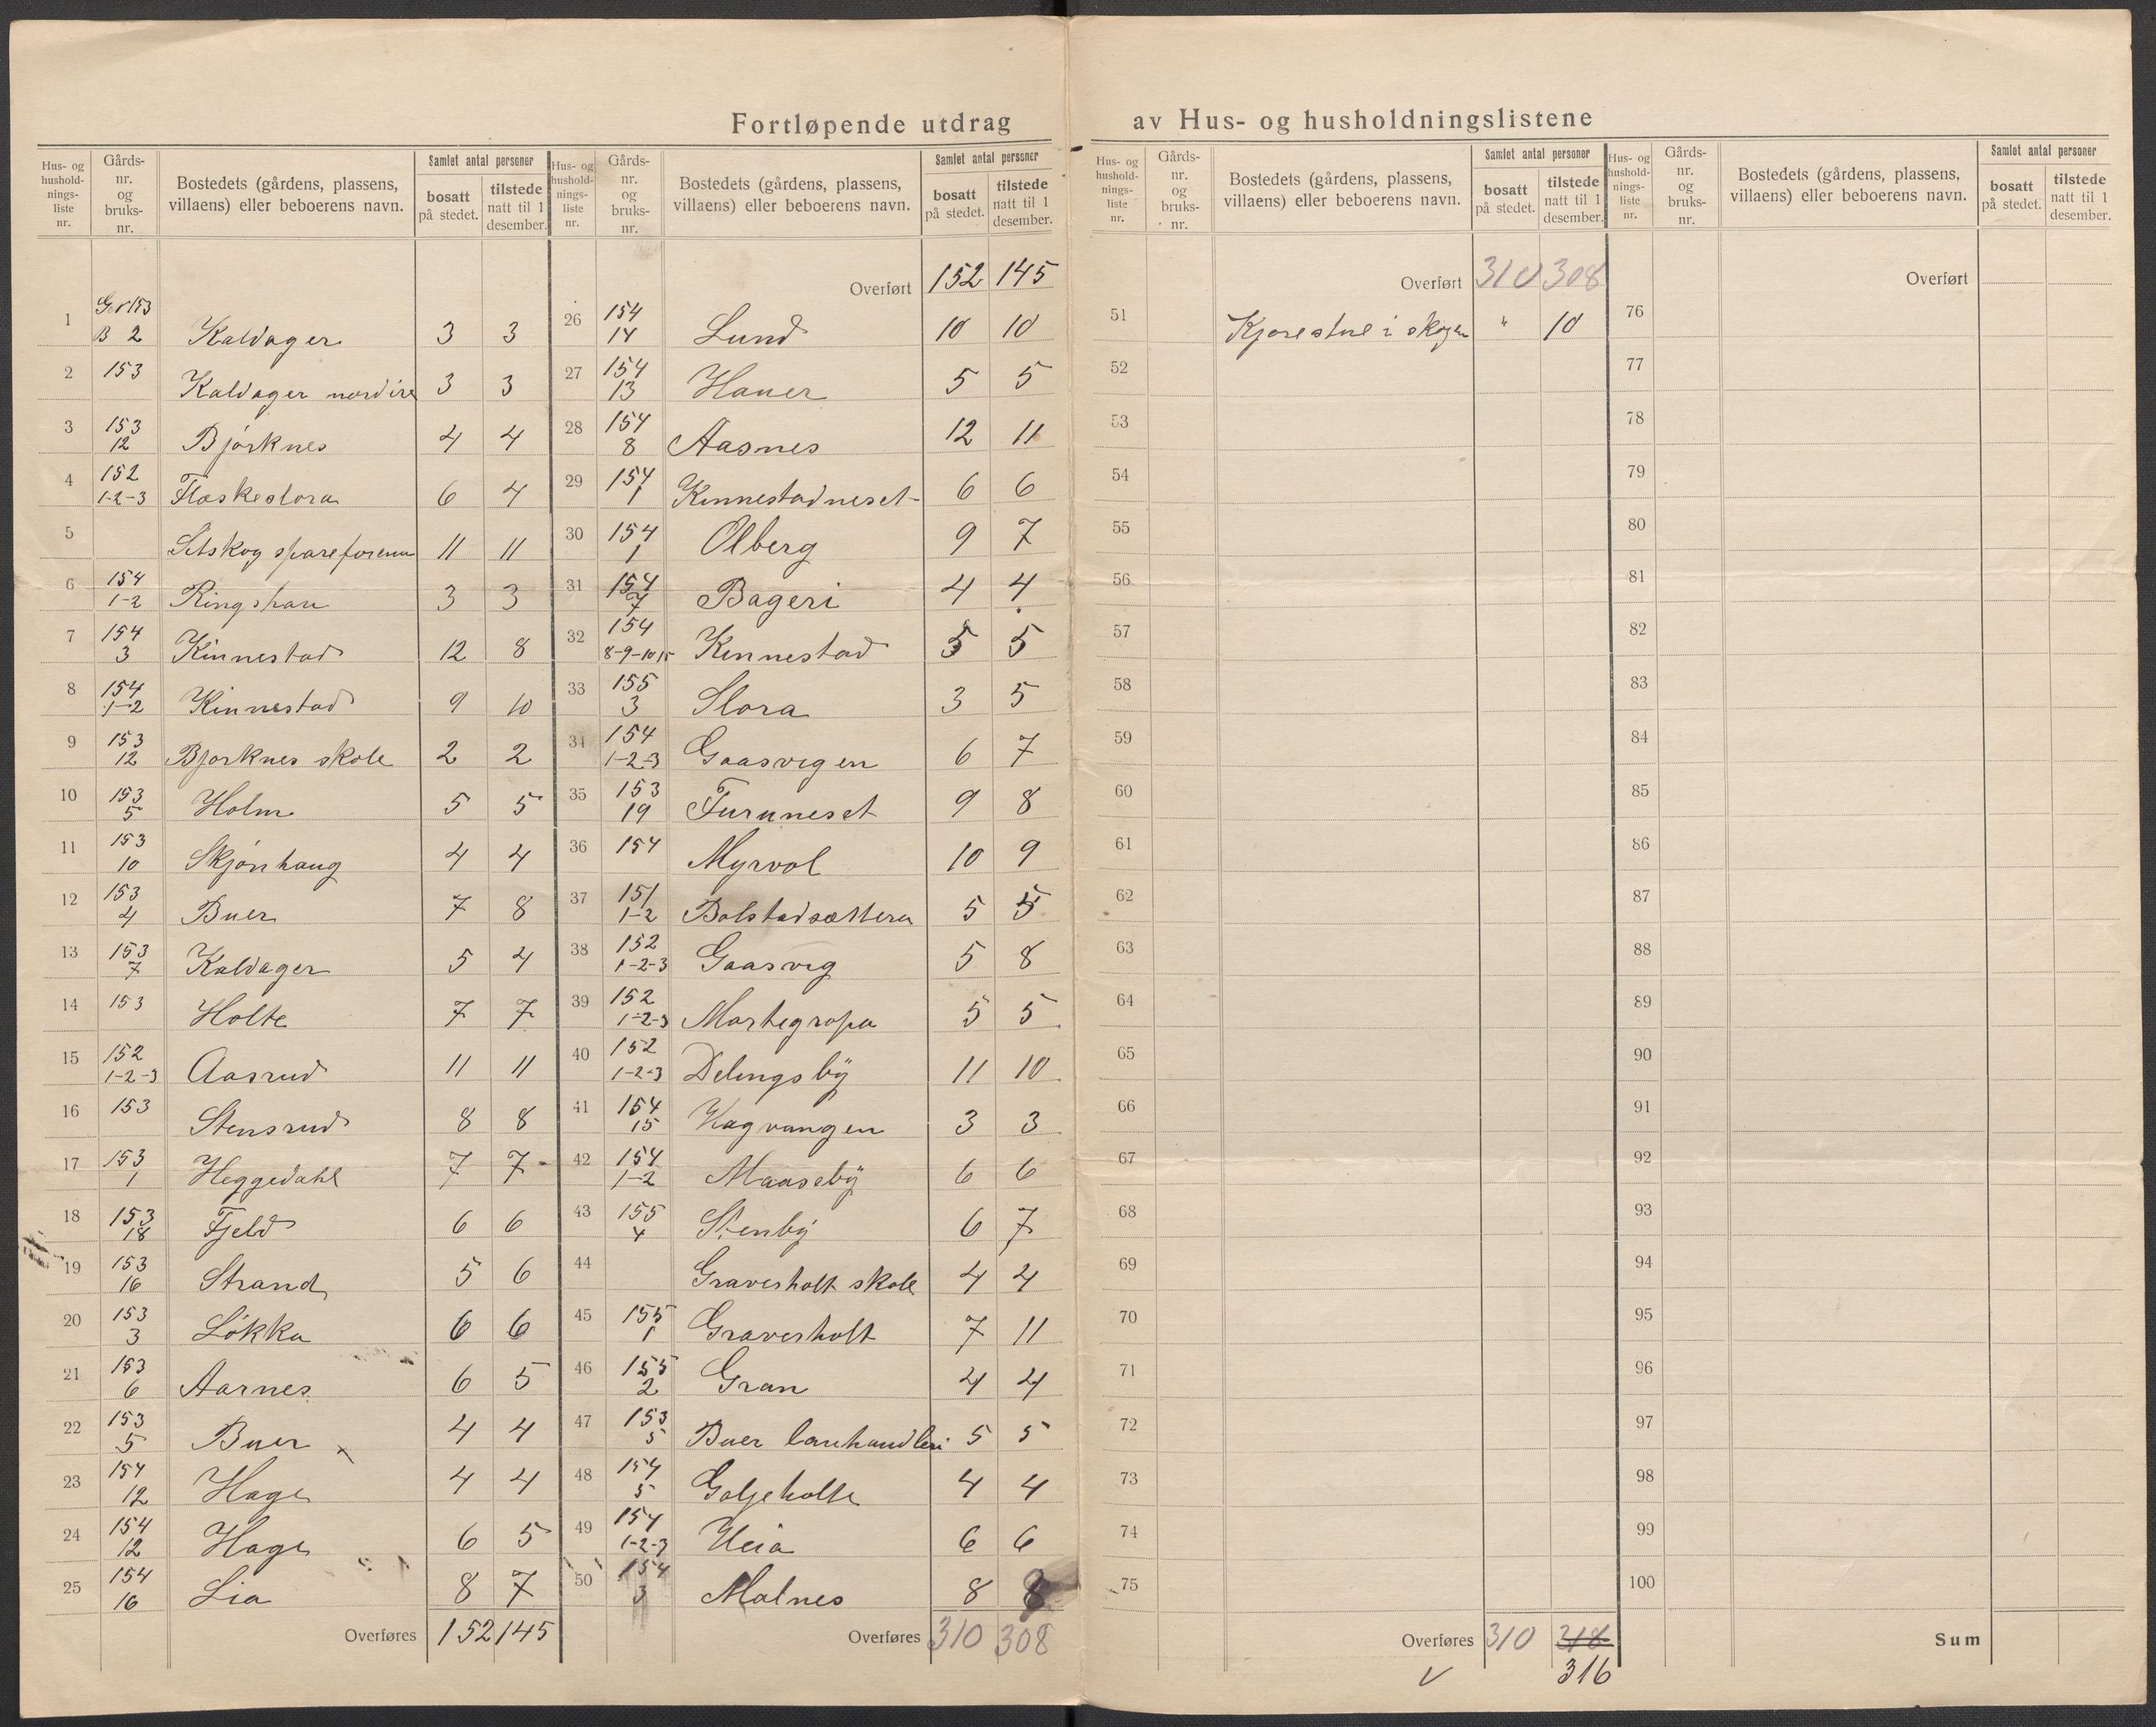 Fortløpende utdrag av Hus- og husholdningslistene
Hus- og husholdnings-liste nr. | Gårds-nr. og bruks-nr. | Bostedets (gårdens, plassens, villaens) eller beboerens navn. | Samlet antal personer | bosatt på stedet. | tilstede natt til 1 desember.
1 | G.nr 153 B 2 | Kaldager | 3 | 3
2 | 153 | Kaldager nordire | 3 | 3
3 | 153 12 | Bjørknes | 4 | 4
4 | 152 1-2-3 | Flaskeslora | 6 | 4
5 | | Setskog spareforenn | 11 | 11
6 | 154 1-2 | Ringshau | 3 | 3
7 | 154 3 | Kinnestad | 12 | 8
8 | 154 1-2 | Kinnestad | 9 | 10
9 | 153 12 | Bjorknes skole | 2 | 2
10 | 153 5 | Holm | 5 | 5
11 | 153 10 | Skjønhaug | 4 | 4
12 | 153 4 | Buer | 7 | 8
13 | 153 7 | Kaldager | 5 | 4
14 | 153 | Holte | 7 | 7
15 | 152 1-2-3 | Aasrud | 11 | 11
16 | 153 | Stensrud | 8 | 8
17 | 153 1 | Heggedahl | 7 | 7
18 | 153 18 | Fjeld | 6 | 6
19 | 153 16 | Strand | 5 | 6
20 | 153 3 | Løkka | 6 | 6
21 | 153 6 | Aarnes | 6 | 5
22 | 153 5 | Buer x | 4 | 4
23 | 154 12 | Hage | 4 | 4
24 | 154 12 | Hage | 6 | 5
25 | 154 16 | Lia | 8 | 7
Overføres | 152 | 145
Hus- og husholdnings-liste nr. | Gårds-nr. og bruks-nr. | Bostedets (gårdens, plassens, villaens) eller beboerens navn. | Samlet antal personer | bosatt på stedet. | tilstede natt til 1 desember.
Overført | 152 | 145
26 | 154 14 | Lund | 10 | 10
27 | 154 13 | Hauer | 5 | 5
28 | 154 8 | Aasnes | 12 | 11
29 | 154 1 | Kinnestadneset | 6 | 6
30 | 154 1 | Olberg | 9 | 7
31 | 154 7 | Bageri | 4 | 4
32 | 154 8-9-10 15 | Kennestad | 5 | 5
33 | 155 3 | Slora | 3 | 5
34 | 154 1-2-3 | Gaasvigen | 6 | 7
35 | 153 19 | Furuneset | 9 | 8
36 | 154 | Myrvol | 10 | 9
37 | 151 1-2 | Bolstadsættern | 5 | 5
38 | 152 1-2-3 | Gaasvig | 5 | 8
39 | 152 1-2-3 | Martegropa | 5 | 5
40 | 152 1-2-3 | Delingsby | 11 | 10
41 | 154 15 | Hagvangen | 3 | 3
42 | 154 1-2 | Maaseby | 6 | 6
43 | 155 4 | Stenby | 6 | 7
44 | | Graversholt skole | 4 | 4
45 | 155 1 | Graversholt | 7 | 11
46 | 155 2 | Gran | 4 | 4
47 | 153 5 | Buer lanhandleri | 5 | 5
48 | 154 5 | Goljeholte | 4 | 4
49 | 154 1-2-3 | Heia | 6 | 6
50 | 154 3 | Malnes | 8 | 8
Overføres | 310 | 308
Hus- og husholdnings-liste nr. | Gårds-nr. og bruks-nr. | Bostedets (gårdens, plassens, villaens) eller beboerens navn. | Samlet antal personer | bosatt på stedet. | tilstede natt til 1 desember.
Overført | 310 | 308
51 | | Kjørestue i skogen | " | 10
52
53
54
55
56
57
58
59
60
61
62
63
64
65
66
67
68
69
70
71
72
73
74
75
Overføres | 310 | 318
316
Hus- og husholdnings-liste nr. | Gårds-nr. og bruks-nr. | Bostedets (gårdens, plassens, villaens) eller beboerens navn. | Samlet antal personer | bosatt på stedet. | tilstede natt til 1 desember.
Overført
76
77
78
79
80
81
82
83
84
85
86
87
88
89
90
91
92
93
94
95
96
97
98
99
100
Sum